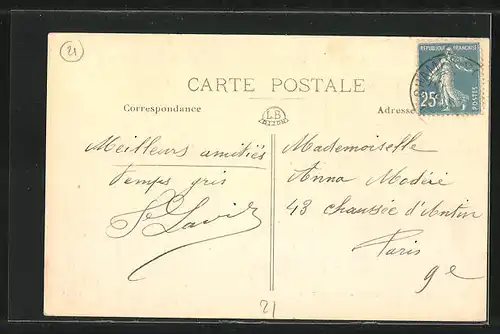 21
RÉPUBLIQUE FRANÇAISE
25c
POSTES
CARTE POSTALE
Correspondance
LB
DIJON
Adresse
Meilleurs amitiés
temps gris
Mademoiselle
Anna
43 chaussée d'Antin
Paris
9e
21